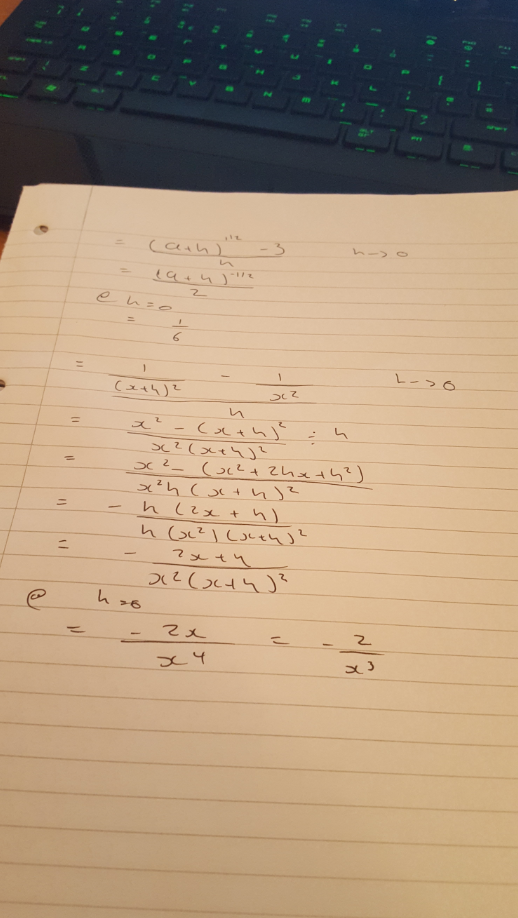 = ((9+h)^1/2 - 3)/h h -> 0
= ((9+h)^-1/2)/2
@ h=0
= 1/6
= (1/(x+h)² - 1/x²)/h h -> 0
= (x² - (x+h)²)/(x²(x+h)²) ÷ h
= (x² - (x²+2hx+h²))/(x²h(x+h)²)
= - (h(2x+h))/(h(x²)(x+h)²)
= - (2x+h)/(x²(x+h)²)
@ h=0
= (-2x)/(x⁴) = - 2/x³